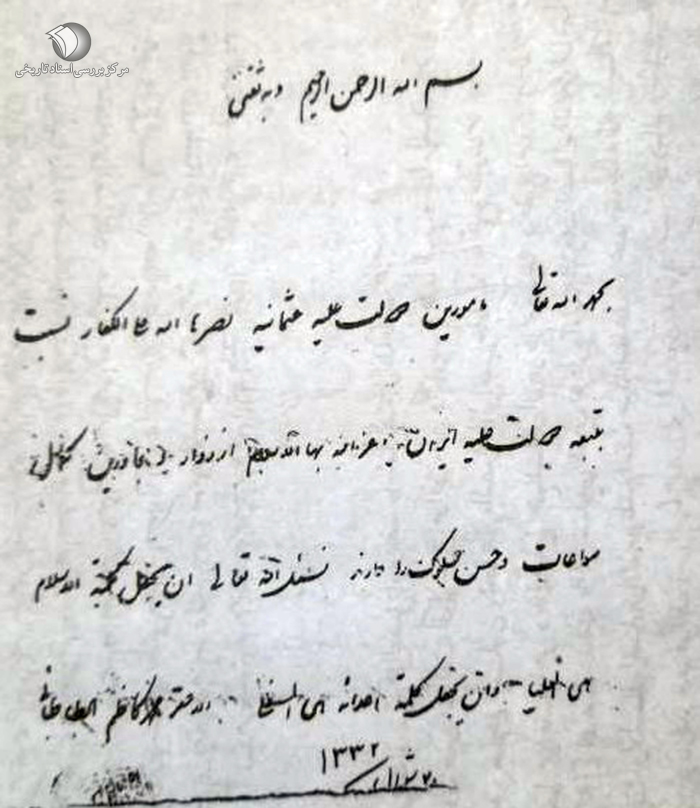 مرکز بررسی اسناد تاریخی
بسم الله الرحمن الرحیم و به ثقتی
بحمد الله تعالی مأمورین دولت علیه عثمانیه نصرها الله علی الکفار نسبت
بتبعه دولت علیه ایران اعز الله بها الاسلام از زوار و مجاورین کمال
مراعات و حسن سلوک را دارند نسئل الله تعالی ان یجعل کلمة الاسلام
هی العلیا وان یجعل کلمة اعدائه هی السفلی الاحقر محمد کاظم الطباطبائی
۱۳۳۲